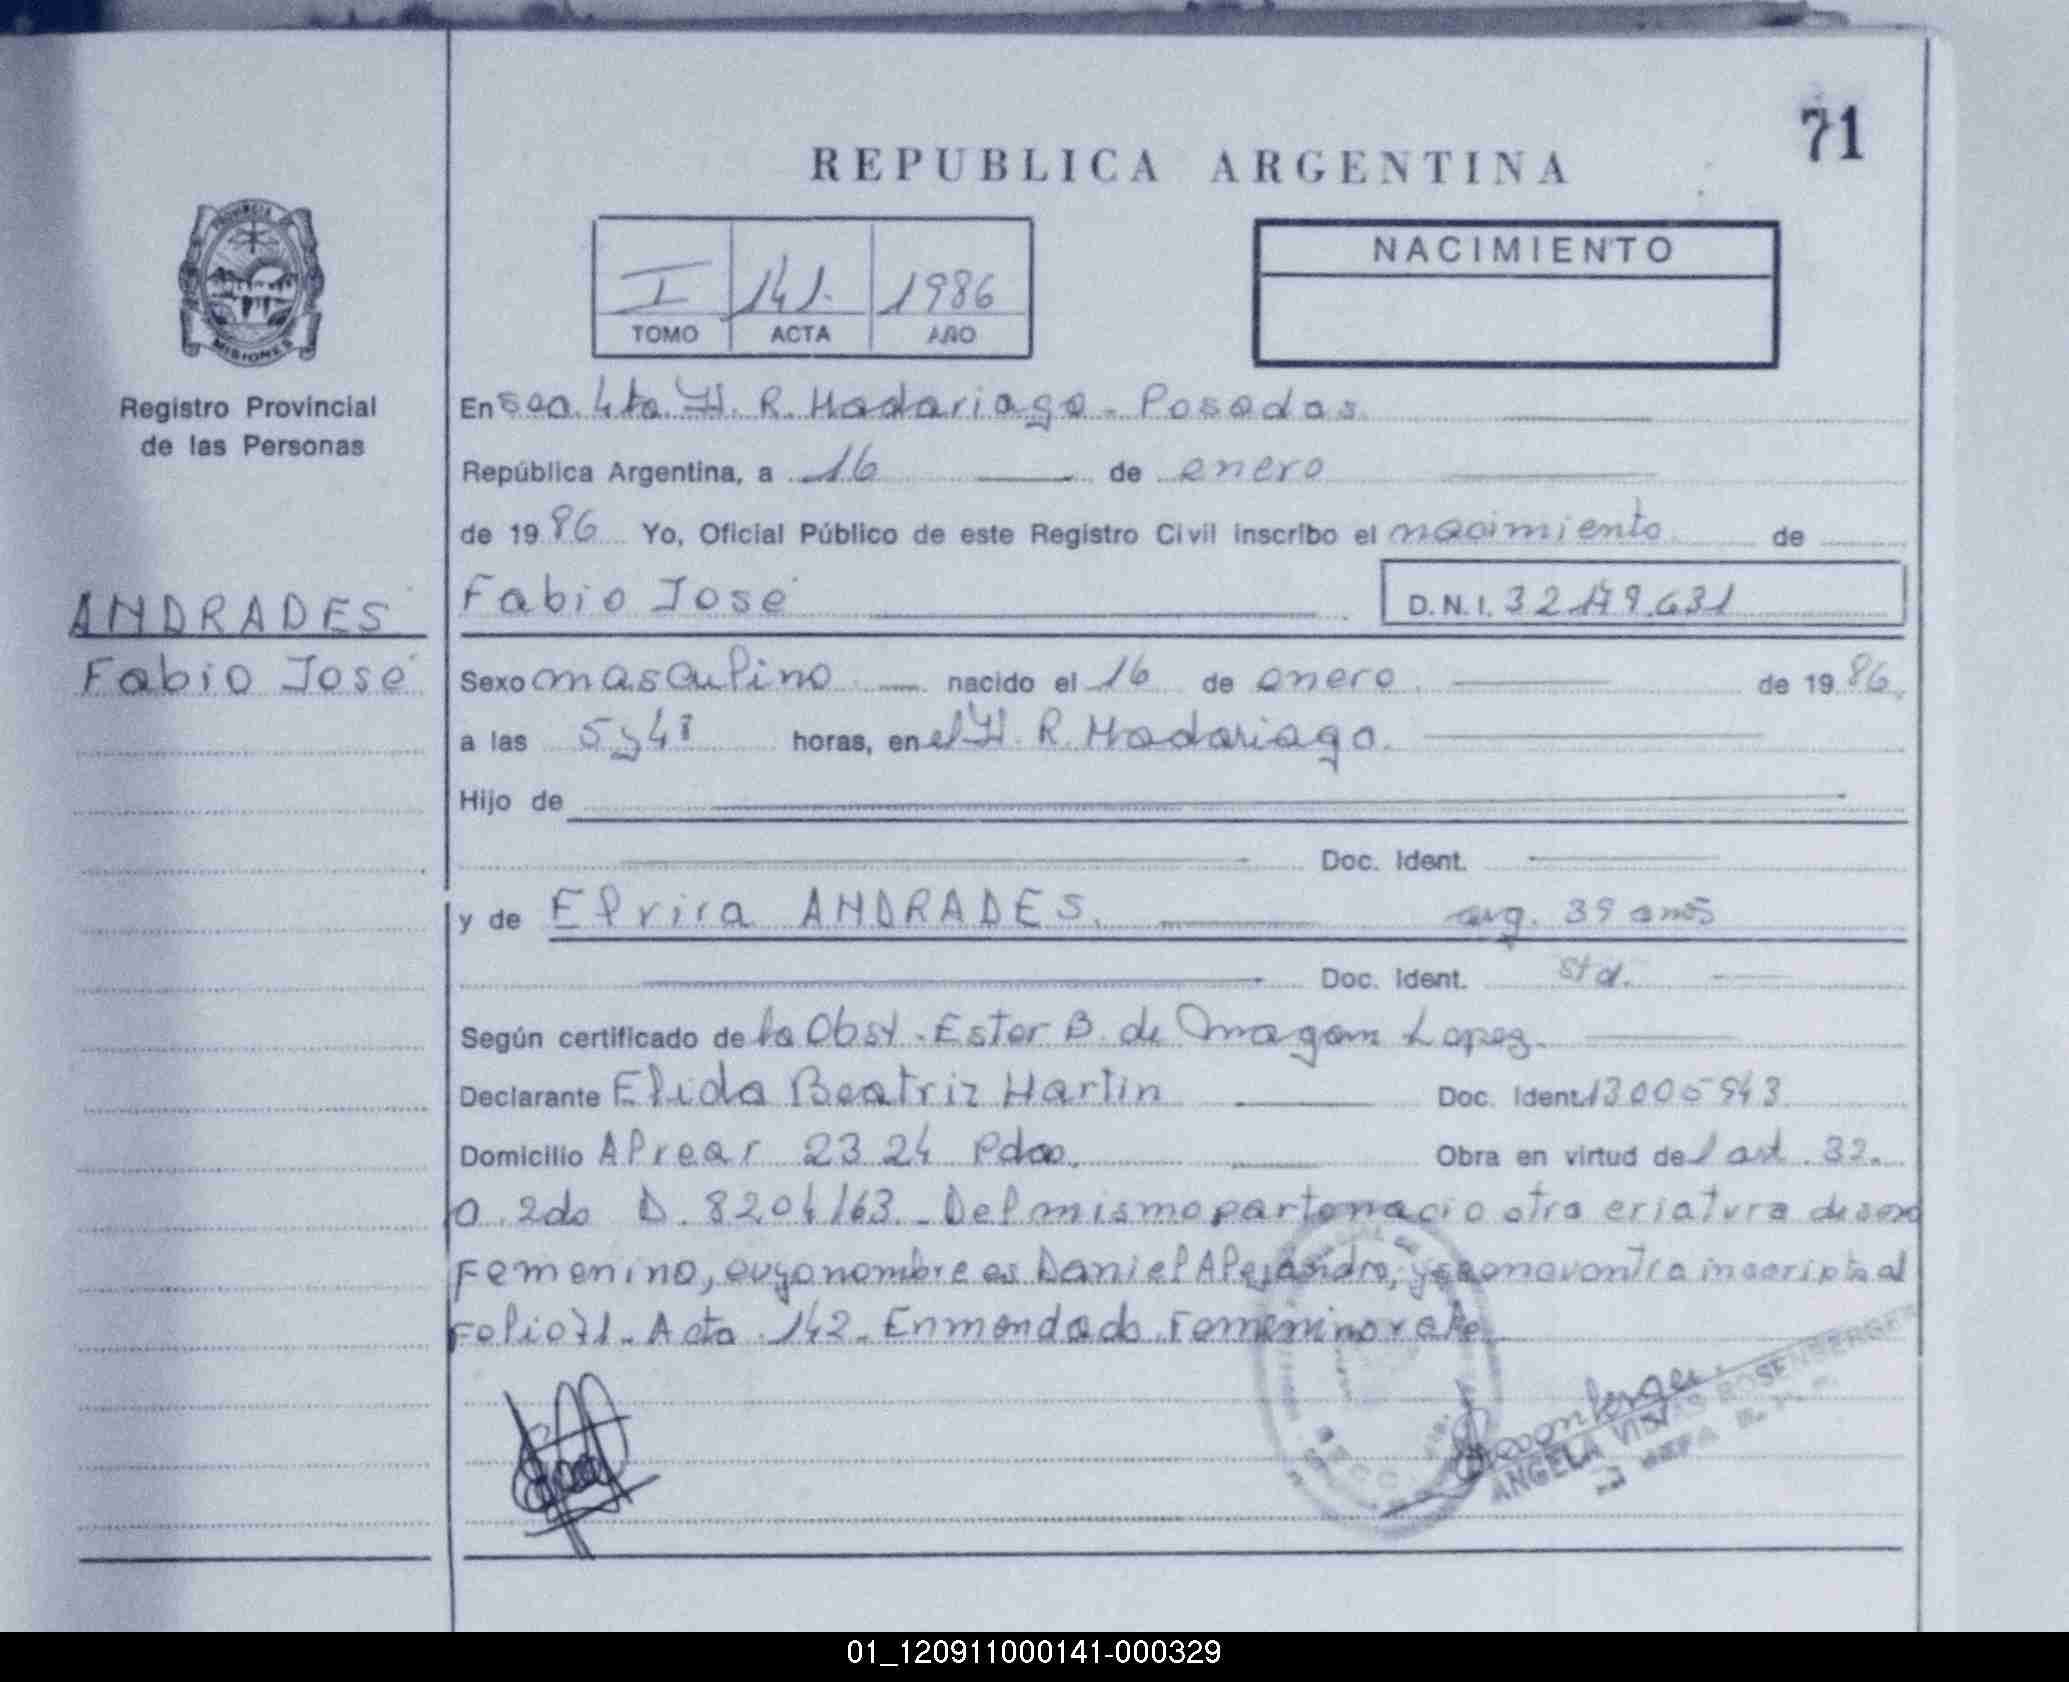 71
REPUBLICA ARGENTINA
PROVINCIA
MISIONES
I 141. 1986
TOMO ACTA AÑO
NACIMIENTO
Registro Provincial
de las Personas
ANDRADES
Fabio José
En Sec. 4ta. H. R. Madariaga - Posadas
República Argentina, a 16 de enero
de 1986 Yo, Oficial Público de este Registro Civil inscribo el nacimiento de
Fabio José D.N.I. 32.179.631
Sexo masculino nacido el 16 de enero de 1986
a las 5 y 48 horas, en el H. R. Madariaga.
Hijo de
Doc. Ident.
y de Elvira ANDRADES. arg. 39 años
Doc. Ident.
Según certificado de la Obst. Ester B. de Lopez.
Declarante Elida Beatriz Martin Doc. Ident. 13005943
Domicilio Alvear 2324 Pdas. Obra en virtud del art. 32.
a. 2do D. 8204/63 - Del mismo parto nacio otra criatura de sexo
Femenino, cuyo nombre es Daniel Alejandro, y se encuentra inscripta al
Folio 71 - Acta 142 - Enmendado Femenino vale.
ANGELA ROSENBERGER
JEFA
01_120911000141-000329